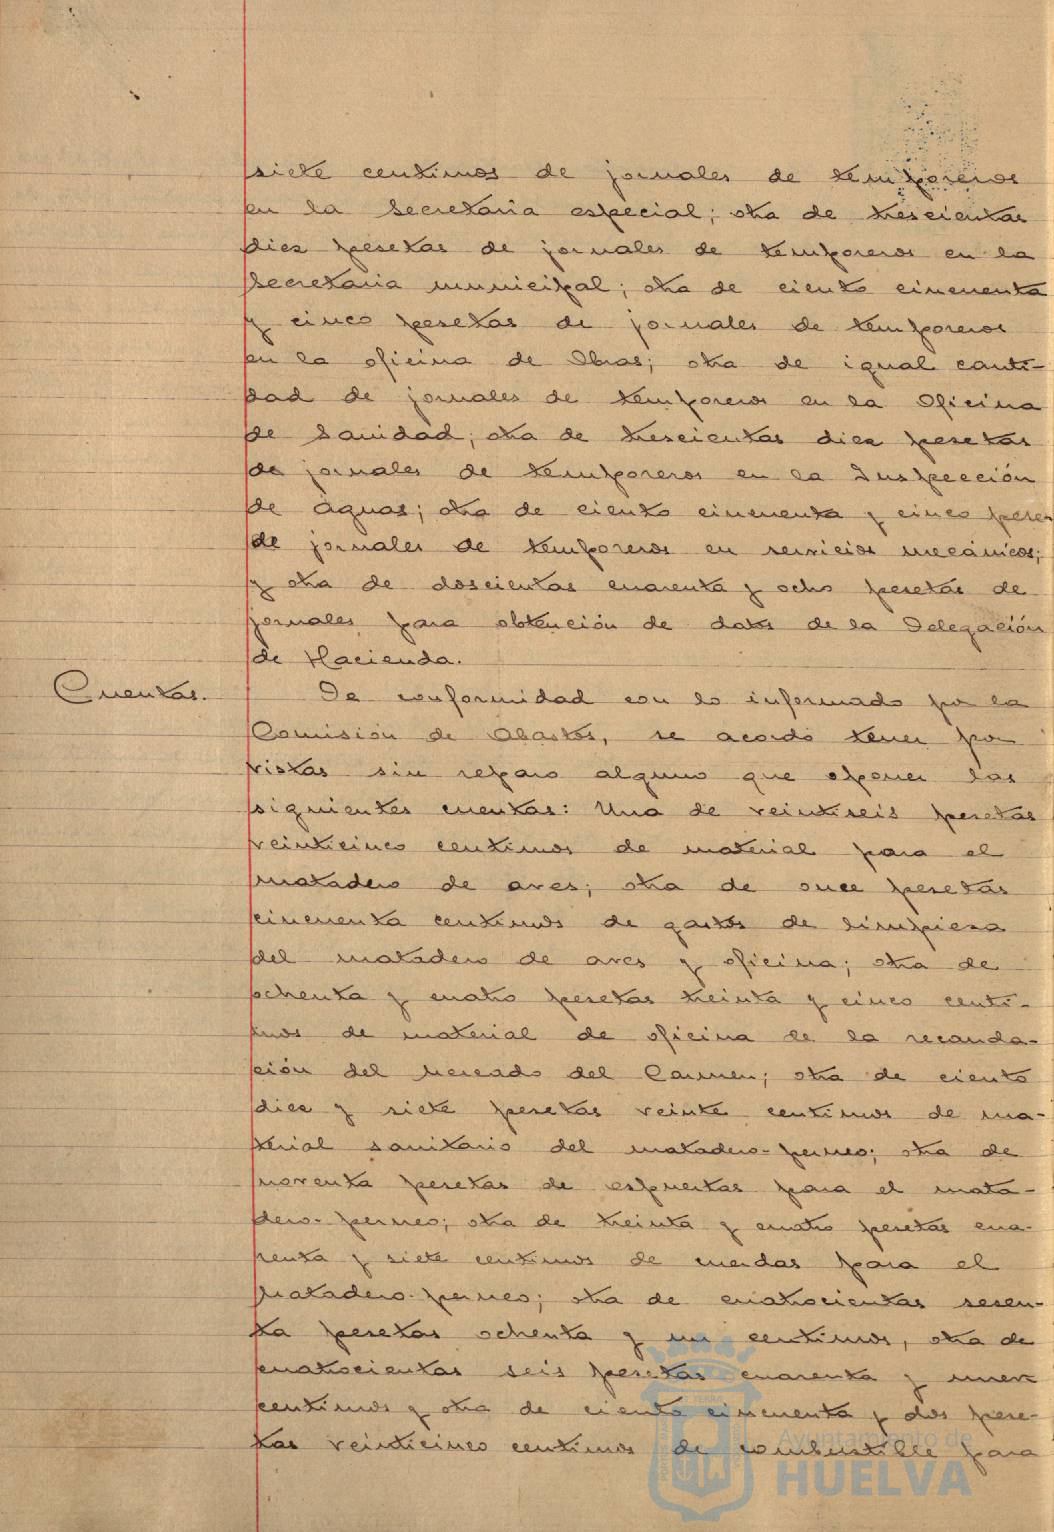 siete centimos de jornales de temporeros
en la Secretaria especial; otra de trescientas
diez pesetas de jornales de temporeros en la
Secretaria municipal; otra de ciento cincuenta
y cinco pesetas de jornales de temporeros
en la oficina de Obras; otra de igual canti-
dad de jornales de temporeros en la Oficina
de Sanidad; otra de trescientas diez pesetas
de jornales de temporeros en la Inspección
de aguas; otra de ciento cincuenta y cinco peset
de jornales de temporeros en servicios mecánicos;
y otra de doscientas cuarenta y ocho pesetas de
jornales para obtención de datos de la Delegación
de Hacienda.
Cuentas.
De conformidad con lo informado por la
Comisión de Abastos, se acordó tener por
vistas sin reparo alguno que oponer las
siguientes cuentas: Una de veintiseis pesetas
veinticinco centimos de material para el
matadero de aves; otra de once pesetas
cincuenta centimos de gastos de limpieza
del matadero de aves y oficina; otra de
ochenta y cuatro pesetas treinta y cinco centi-
mos de material de oficina de la recauda-
ción del Mercado del Carmen; otra de ciento
diez y siete pesetas veinte centimos de ma-
terial sanitario del matadero-perneo; otra de
noventa pesetas de espuertas para el mata-
dero-perneo; otra de treinta y cuatro pesetas cua-
renta y siete centimos de cuerdas para el
Matadero-perneo; otra de cuatrocientas sesen-
ta pesetas ochenta y un centimos, otra de
cuatrocientas seis pesetas cuarenta y nueve
centimos y otra de ciento cincuenta y dos pese-
tas veinticinco centimos de combustible para
Ayuntamiento de
HUELVA